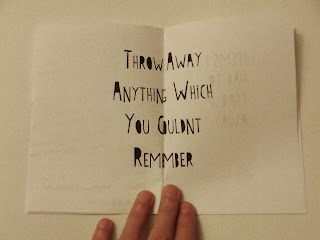 THROW AWAY
ANYTHING WHICH
YOU CULDNT
REMMBER